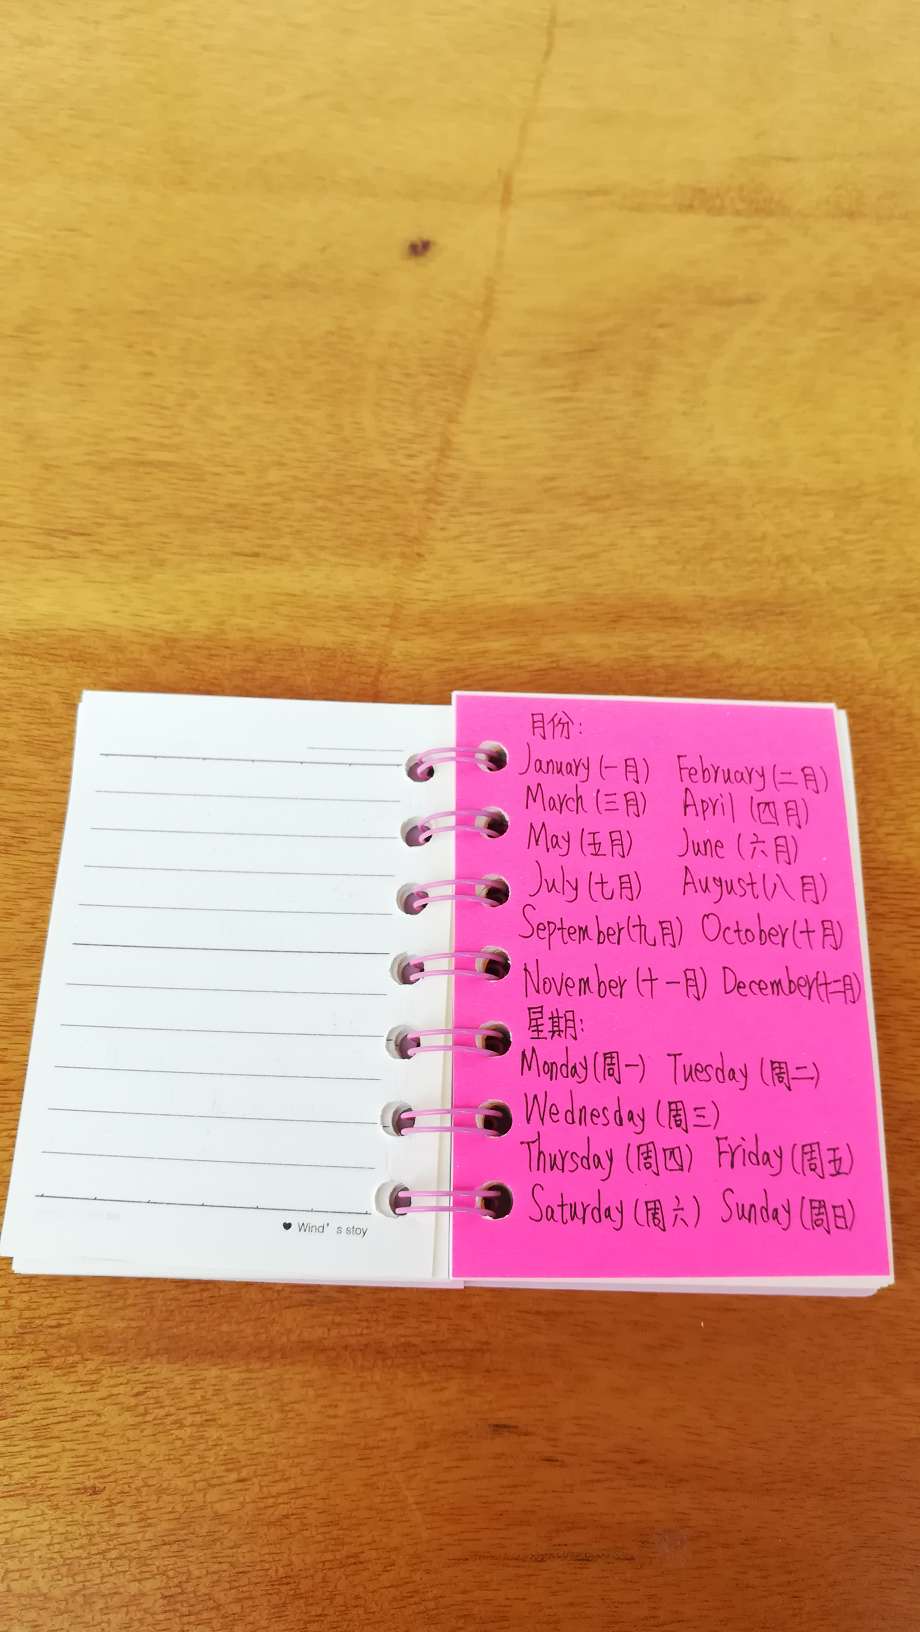 ♥ Wind' s stoy
月份:
January (一月) February (二月)
March (三月) April (四月)
May (五月) June (六月)
July (七月) August (八月)
September (九月) October (十月)
November (十一月) December (十二月)
星期:
Monday (周一) Tuesday (周二)
Wednesday (周三)
Thursday (周四) Friday (周五)
Saturday (周六) Sunday (周日)